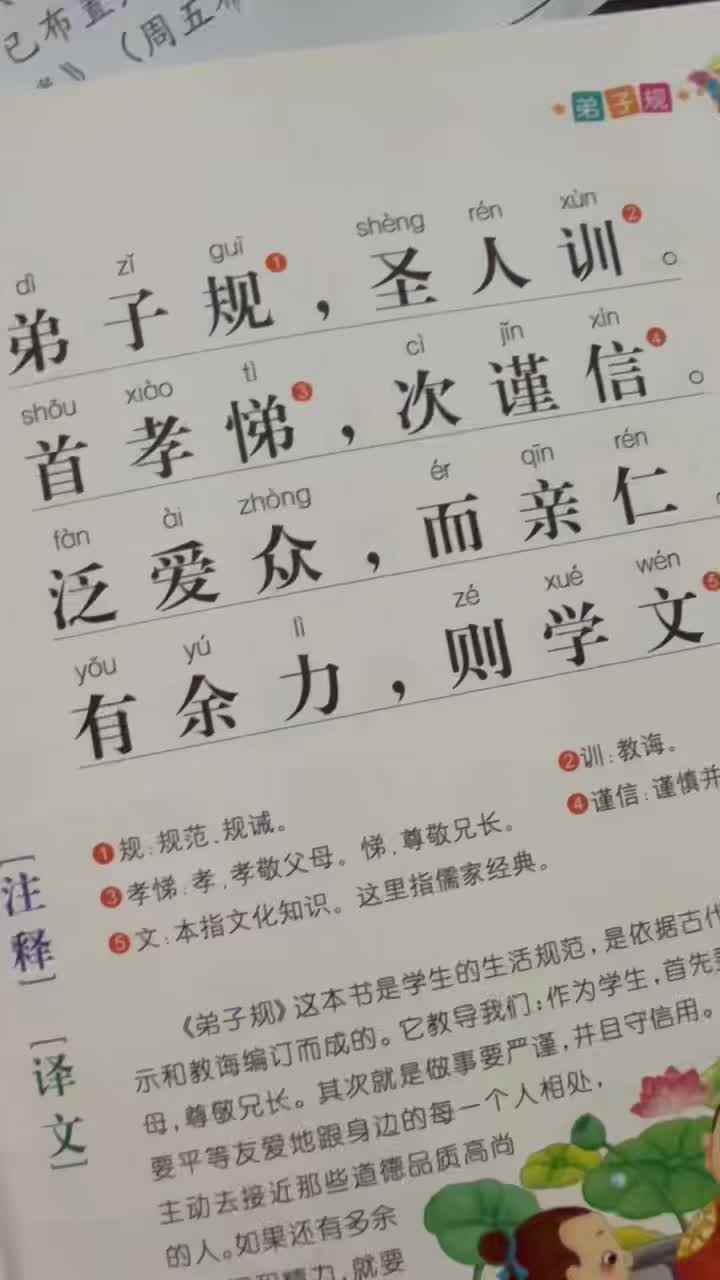 已布置
》（周五布
弟子规
dì zǐ guī shèng rén xùn
弟子规①，圣人训②。
shǒu xiào tì cì jǐn xìn
首孝悌③，次谨信④。
fàn ài zhòng ér qīn rén
泛爱众，而亲仁。
yǒu yú lì zé xué wén
有余力，则学文⑤
[注释]
①规：规范、规诫。 ②训：教诲。
③孝悌：孝，孝敬父母。悌，尊敬兄长。 ④谨信：谨慎并
⑤文：本指文化知识。这里指儒家经典。
[译文]
《弟子规》这本书是学生的生活规范，是依据古代
示和教诲编订而成的。它教导我们：作为学生，首先
母，尊敬兄长。其次就是做事要严谨，并且守信用。
要平等友爱地跟身边的每一个人相处，
主动去接近那些道德品质高尚
的人。如果还有多余
精力，就要